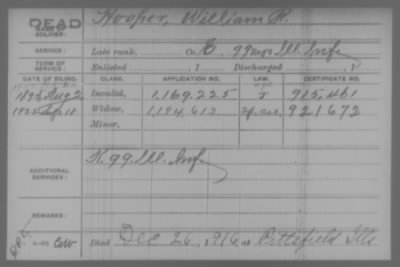 DEAD
NAME OF SOLDIER: Hooper, William H.
SERVICE: Late rank, Co. E, 99 Reg't Ill. Inf.
TERM OF SERVICE: Enlisted , 1 Discharged , 1
DATE OF FILING. CLASS. APPLICATION NO. LAW. CERTIFICATE NO.
1895 Aug 2 Invalid, 1,169.225 J 915,461
Sep 18 Widow, 1,194,613 921672
Minor,
ADDITIONAL SERVICES: K. 99 Ill. Inf.
REMARKS:
Died Dec 26, 1916, at Pittsfield Ills